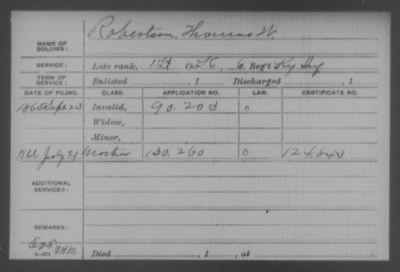 Robertson, W.
NAME OF SOLDIER:
SERVICE: Late rank, Co. K, 6 Reg't Ky Inf
TERM OF SERVICE: Enlisted , 1 Discharged , 1
DATE OF FILING. CLASS. APPLICATION NO. LAW. CERTIFICATE NO.
1865 Sept 23 Invalid, 90.203 0
Widow,
Minor,
July 21 Mother 130.260 0
ADDITIONAL SERVICES:
REMARKS:
Died , 1 , at